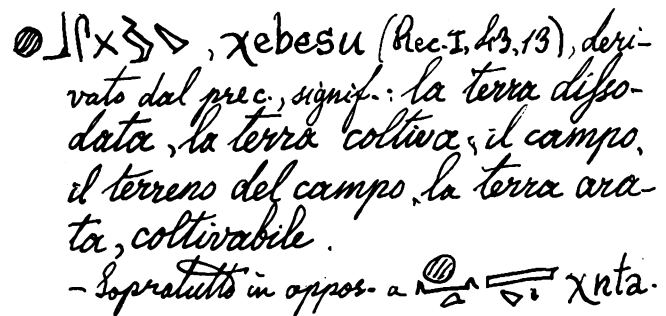 , χebesu (Rec. I, 43, 13), deri-
vato dal prec., signif.: la terra disso-
data, la terra coltiva, il campo,
il terreno del campo, la terra ara-
ta, coltivabile.
- Sopratutto in oppos. a χnta.